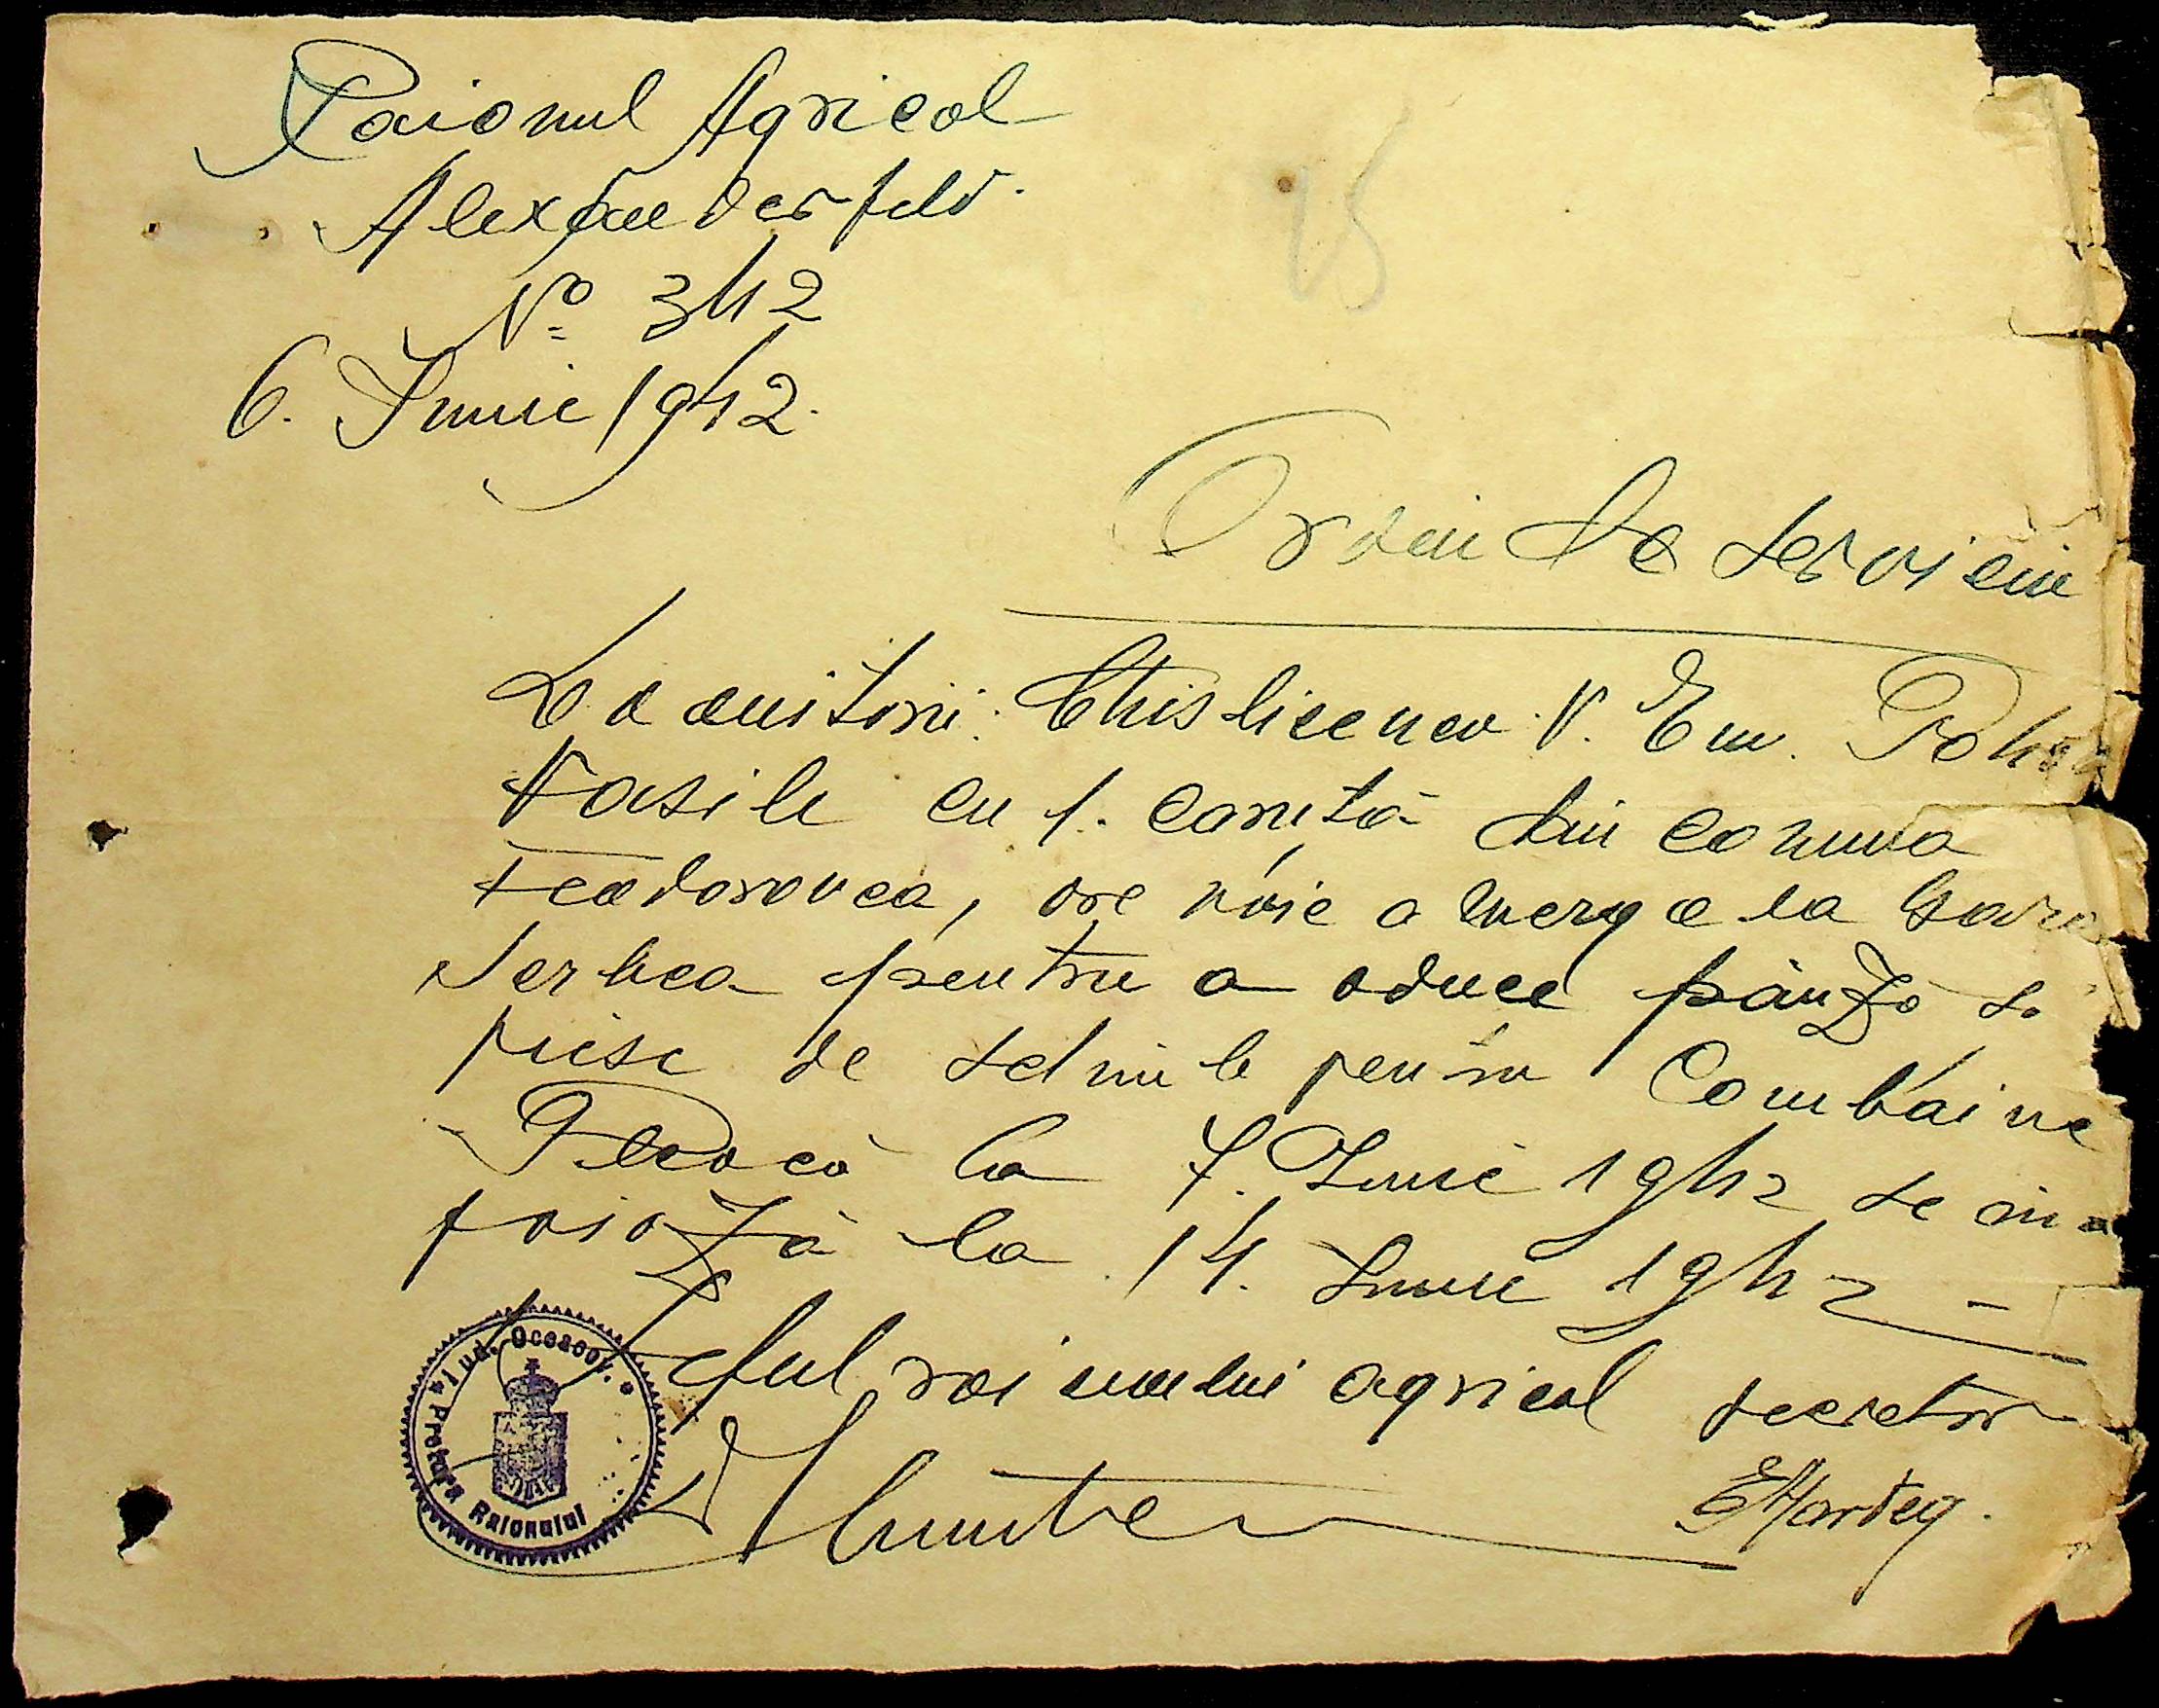 Raionul Agricol
Alexanderfeld.
Nº 342
6. Iunie 1942.
25
Ordin de serviciu
Locuitorii: Chislicencu V. Em.
Vasile cu 1. căruță din comuna
Feodorovca, are voie a merge la Gara
Serbca pentru a aduce pânză si
piese de schimb pentru Combaine
Pleacă la 7. Iunie 1942 se îna
poiază la 14. Iunie 1942 –
Șeful raionului agricol secretar
EHarteg.
Jud. Oceacov. * Pretura Raionului